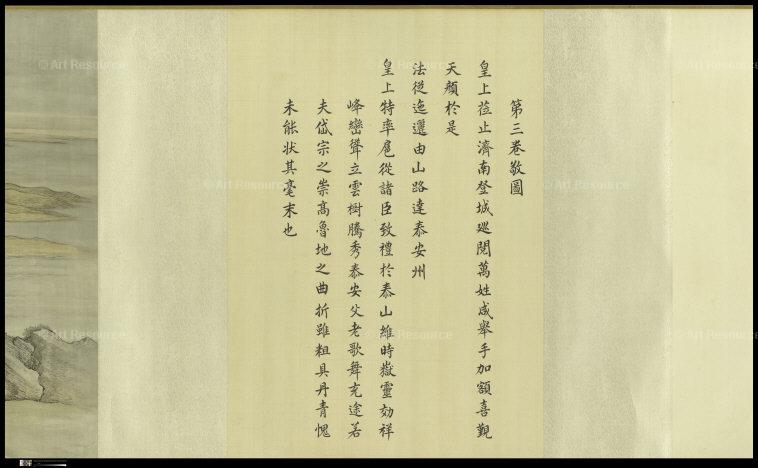 第三卷敬圖
皇上蒞止濟南登城廵閱萬姓咸舉手加額喜覲
天顏於是
法從迤邐由山路達泰安州
皇上特率扈從諸臣致禮於泰山維時嶽靈効祥
峰巒聳立雲樹騰秀泰安父老歌舞充途若
夫岱宗之崇高魯地之曲折雖粗具丹青愧
未能狀其毫末也
© Art Resource
© Art Resource
© Art Resource
© Art Resource
© Art Resource
© Art Resource
© Art Resource
© Art Resource
© Art Resource